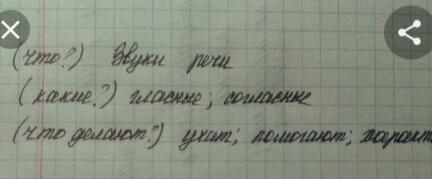 (что?) Звуки речи
(какие?) гласные; согласные
(что делают?) учат; помогают; характ